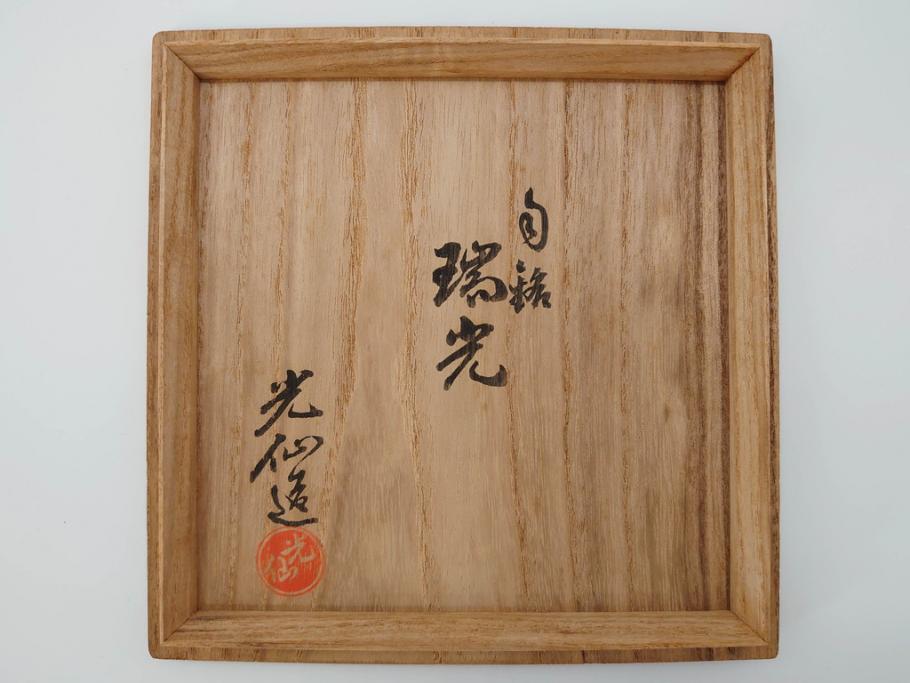 自銘
瑞光
光仙造
光仙